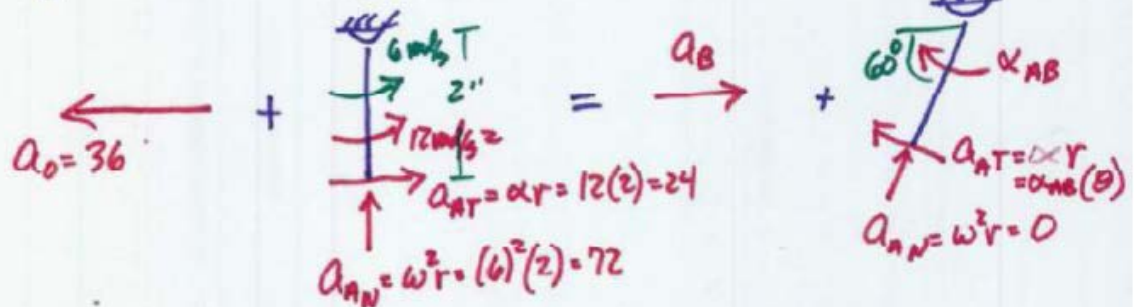 a₀ = 36
+
6 rad/s
2"
12 rad/s 2
a_AT = αr = 12(2) = 24
a_AN = ω²r = (6)²(2) = 72
=
a_B
+
60°
α_AB
a_AT = αr
= α_AB(8)
a_AN = ω²r = 0